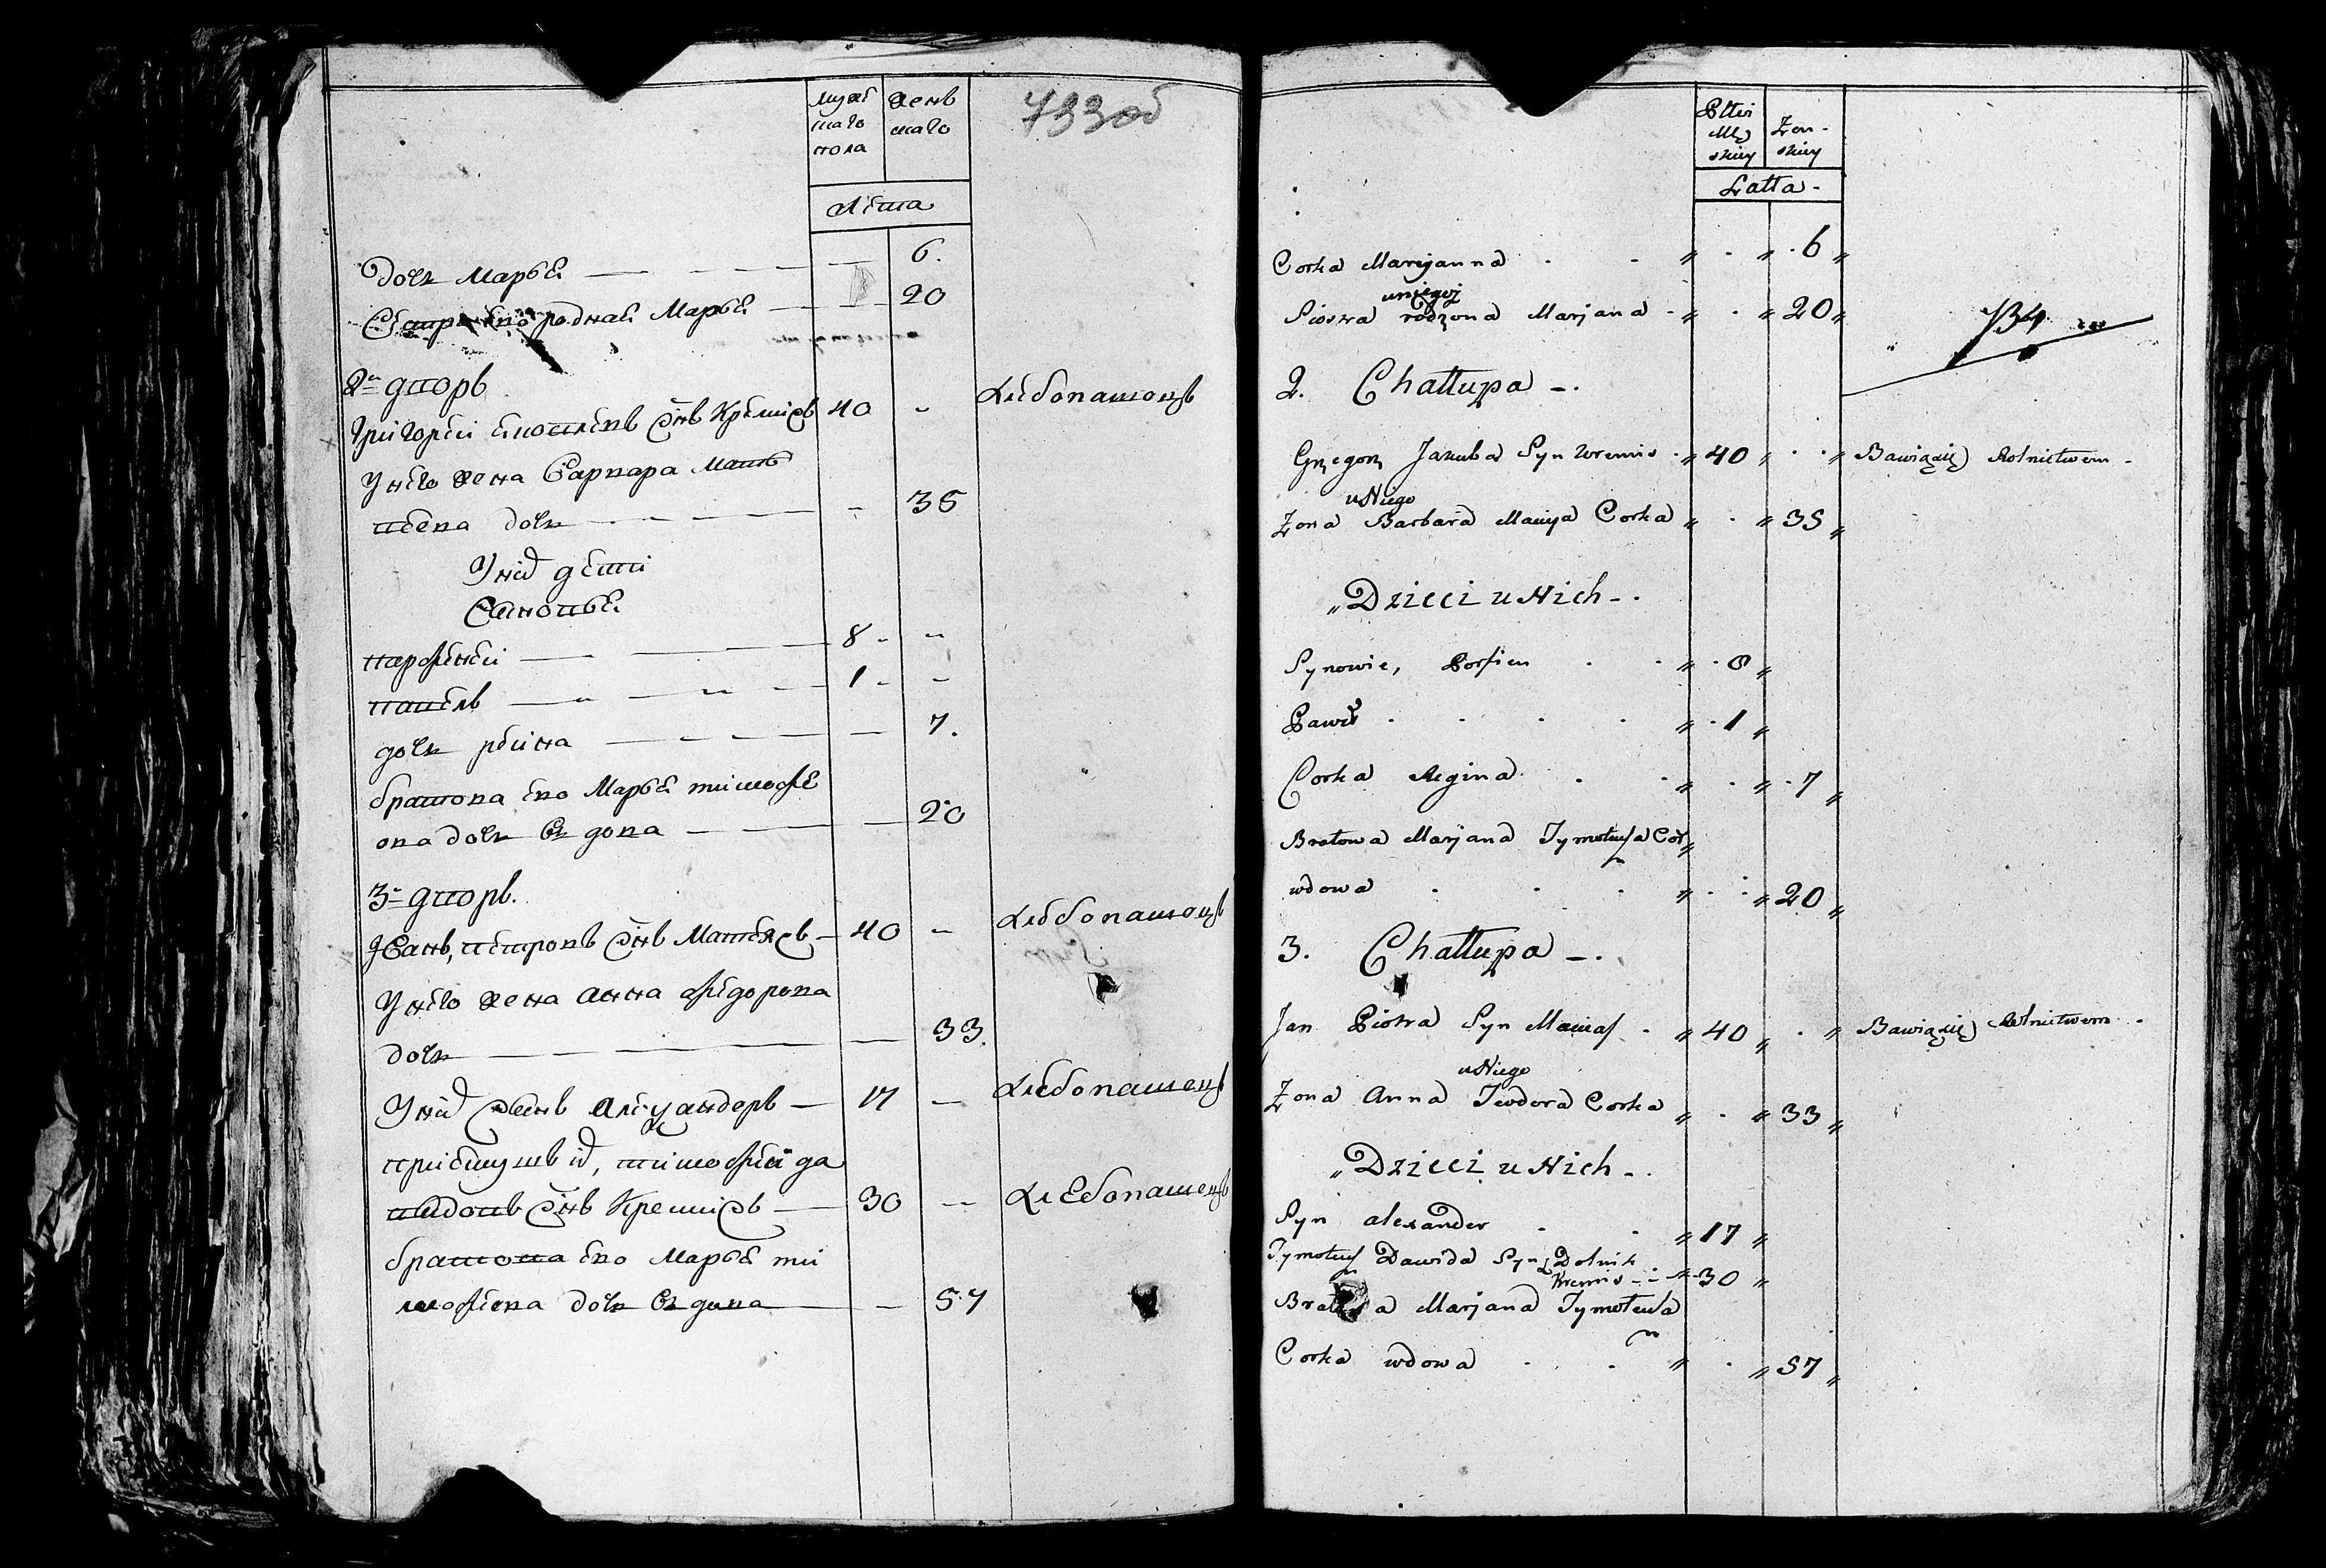 733об
мужескаго пола
женскаго
лета
дочь Марья 6.
Сестра ево родная Марья 20
2й дворъ
Григорей Яковлевъ сынъ Кремисъ 40 Хлебопашецъ
У него жена Варвара Матв
веева дочь 35
У них дети
Сыновья
Парфеней 8
Павелъ 1
дочь реина 7.
братова ево Марья тимофе
ева дочь вдова 20
3й дворъ.
Янъ, петровъ сынъ Матеясъ 40 Хлебопашецъ
У него жена Анна федорова
дочь 33.
У них сынъ Александеръ 17 Хлебопашецъ
при ... их, тимофей да
выдовъ сынъ Кремисъ 30 Хлебопашецъ
братова ево Марья ти
мофеева дочь вдова 57
Płci Męzkiey Zenskiey
Latta
Corka Maryanna 6
uniegoż
Siostra rodzona Marjana 20
734
2. Chałłupa
Grzegorz Jakuba Syn Wremis 40 Bawiący się Rolnictwem
uNiego
Zona Barbara Macieja Corka 35
Dzieci u Nich
Synowie, Porfien 8
Paweł 1
Corka Regina 7
Bratowa Marjana Tymoteusza Cor
wdowa 20
3. Chałłupa
Jan Piotra Syn Macias 40 Bawiący się Rolnictwem
uNiego
Zona Anna Teodora Corka 33
Dzieci u Nich
Syn Alexander 17
Tymoteusz Dawida Syn
Kremis 30
Bratowa Marjana Tymoteusza
Corka wdowa 57